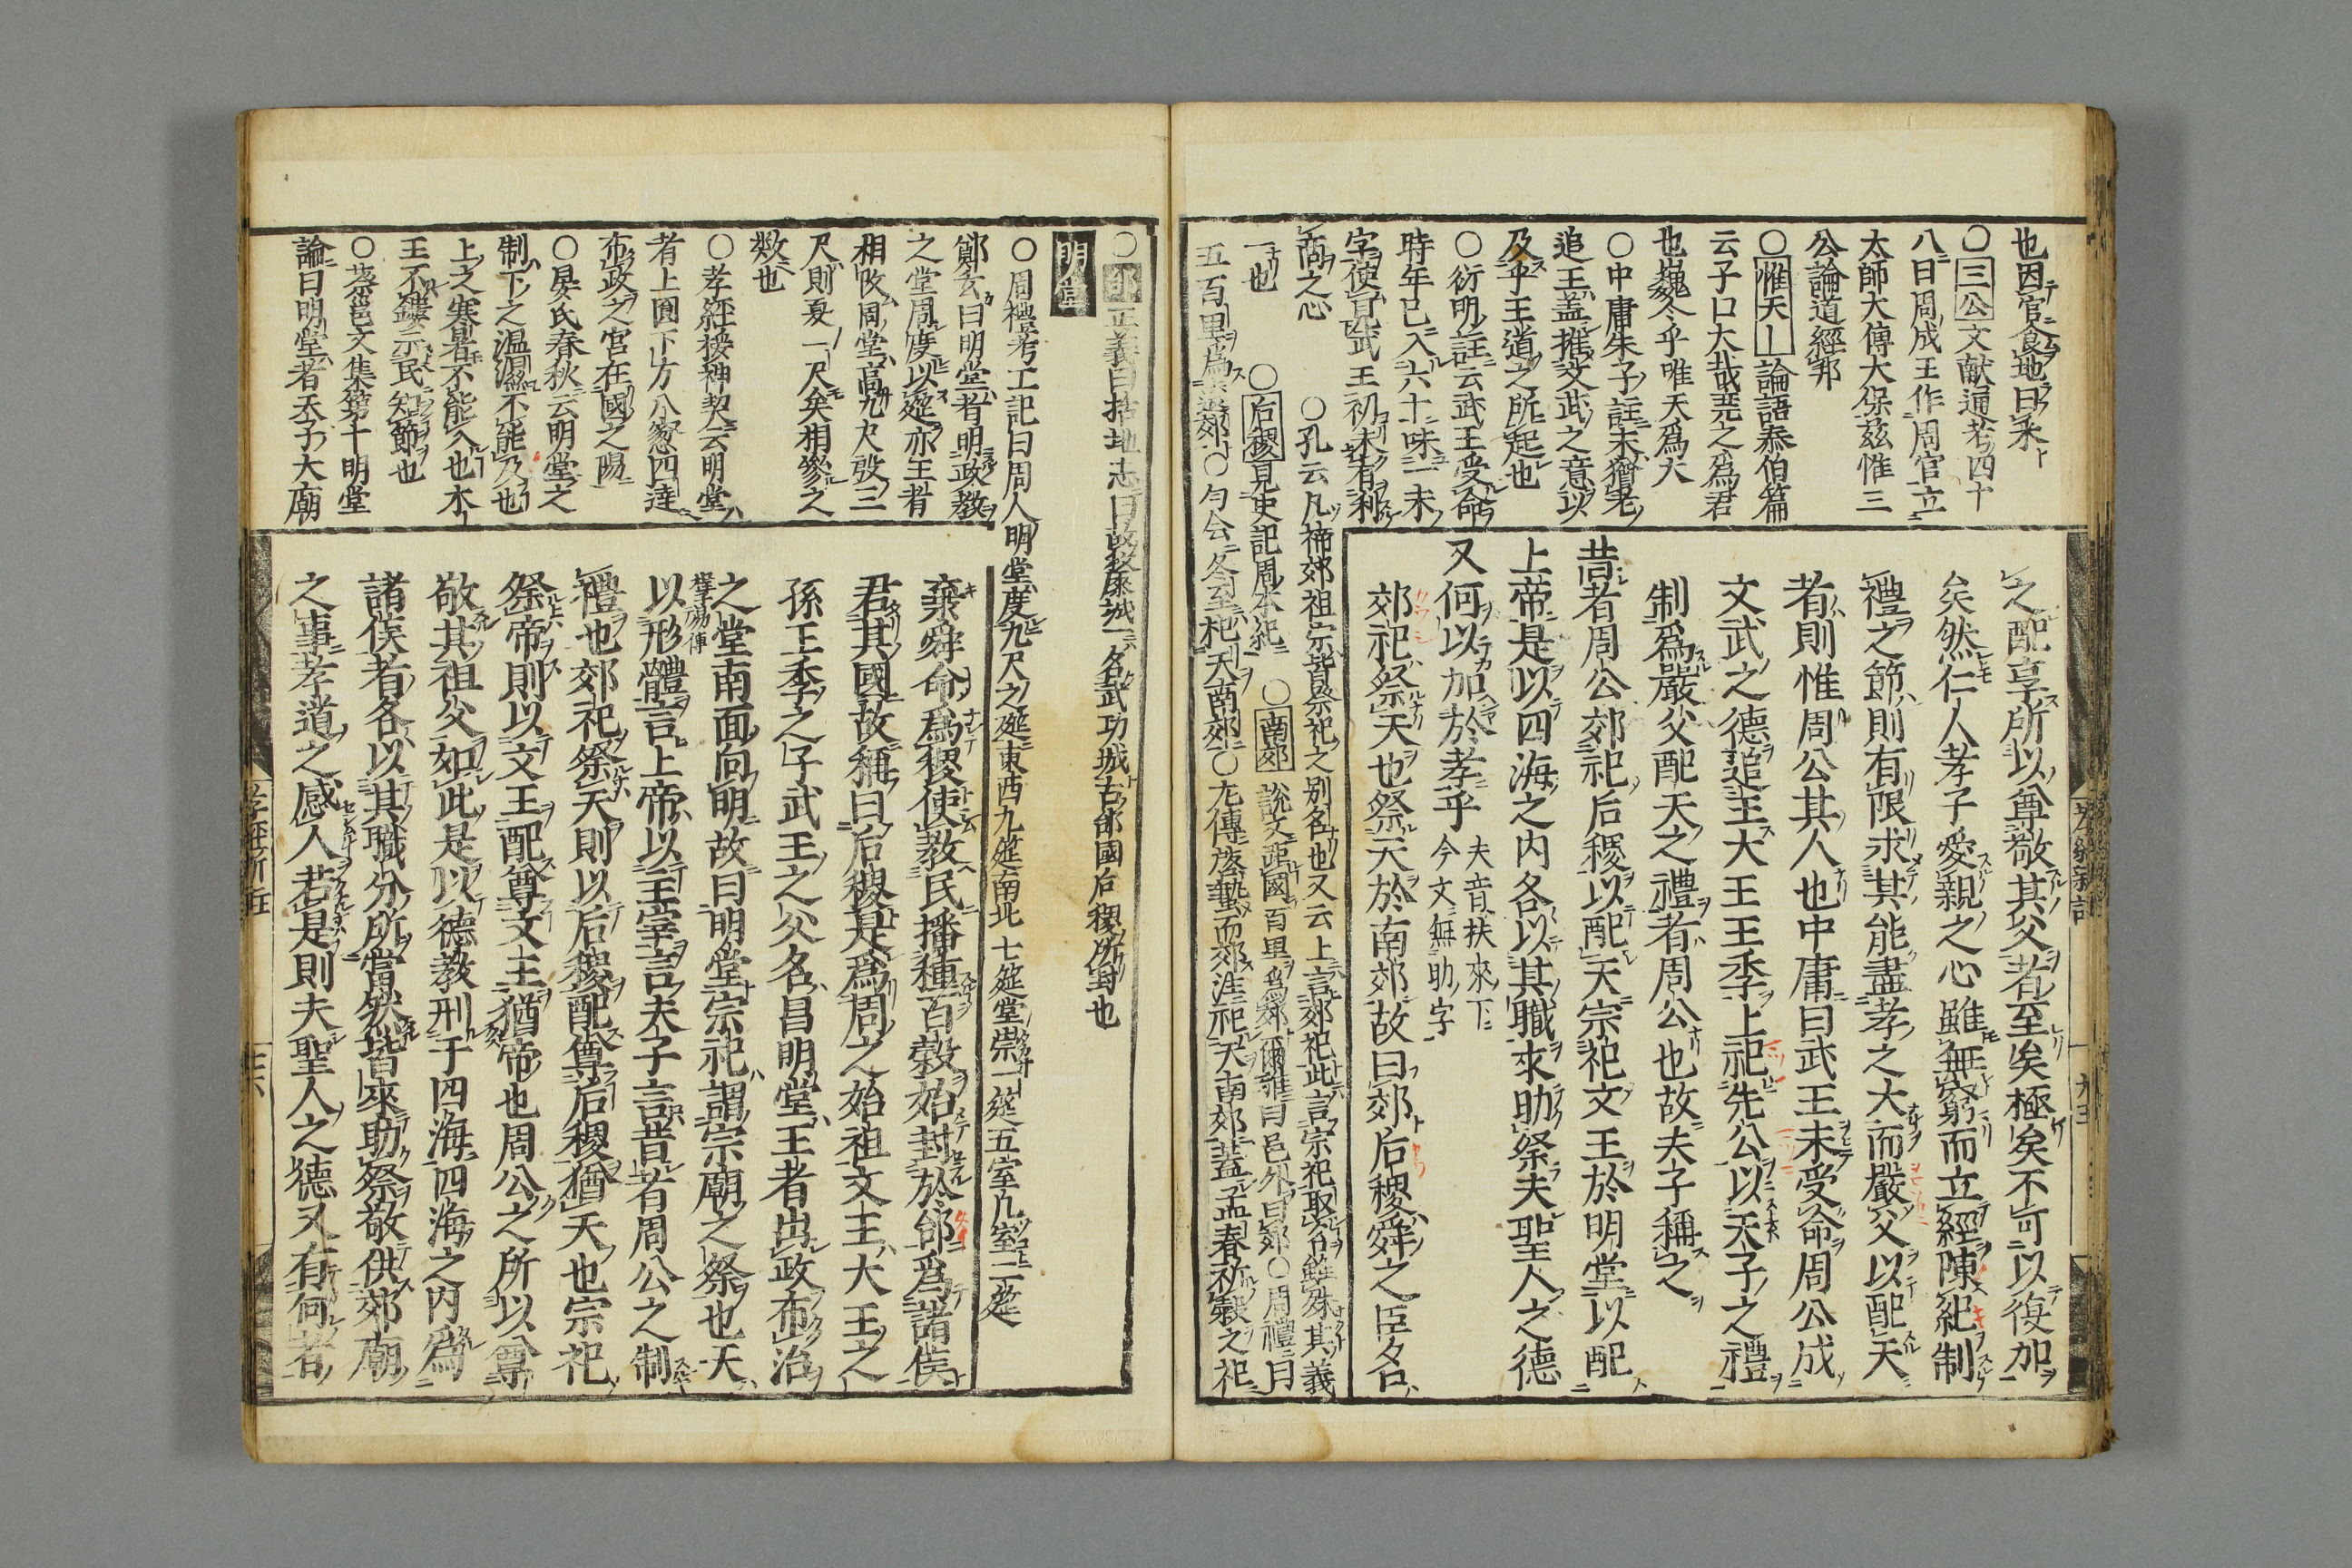 也因官食地曰采
○三公文献通考四十
八曰周成王作周官立
太師大傅大保茲惟三
公論道經邦
○惟天｜論語泰伯篇
云子曰大哉堯之爲君
也巍々乎唯天爲大
○中庸朱子註末猶老
追王蓋推文武之意以
及乎王道之所起也
○衍明註云武王受命
時年已入六十味一末
字使見武王初未有利
商之心
一也
之配享所以尊敬其父者至矣極矣不可以復加
矣然仁人孝子愛親之心雖無窮而立經陳紀制
禮之節則有限求其能盡孝之大而嚴父以配天
者則惟周公其人也中庸曰武王末受命周公成
文武之德追王大王王季上祀先公以天子之禮
制爲嚴父配天之禮者周公也故夫子稱之
昔者周公郊祀后稷以配天宗祀文王於明堂以配
上帝是以四海之内各以其職來助祭夫聖人之德
又何以加於孝乎 夫音扶來下今文無助字
郊祀祭天也祭天於南郊故曰郊后稷舜之臣名
○孔云凡禘郊祖宗皆祭祀之别名也又云上言郊祀此言宗祀取名雖殊其義
○后稷見史記周本紀 ○南郊 說文距國百里爲郊爾雅曰邑外曰郊○周禮
○左傳啓蟄而郊注祀天南郊蓋孟春祈穀之祀
○正義曰括地志曰故斄城一名武功城古邰國后稷所封也
明堂
○周禮考工記曰周人明堂度九尺之筵東西九筵南北七筵堂崇一筵五室凡室二筵
鄭玄曰明堂者明政教
之堂周度以筵亦王者
相改周堂高九尺殷三
尺則夏一尺矣相參之
数也
○孝經援神契云明堂
者上圓下方八窓四達
布政之宮在國之陽
○晏氏春秋云明堂之
制下之温濕不能及也
上之寒暑不能入也木
王不鏤示民知節也
○蔡邕文集第十明堂
論曰明堂者天子大廟
棄舜命爲稷使教民播種百穀始封於邰爲諸侯
君其國故稱曰后稷是爲周之始祖文王大王之
孫王季之子武王之父名昌明堂王者出政布治
之堂南面向明故曰明堂宗祀謂宗廟之祭也天
以形體言上帝以主宰言夫子言昔者周公之制
禮也郊祀祭天則以后稷配尊后稷猶天也宗祀
祭帝則以文王配尊文王猶帝也周公之所以尊
敬其祖父如此是以德教刑于四海四海之内爲
諸侯者各以其職分所當然皆來助祭敬供郊廟
之事孝道之感人若是則夫聖人之德又有何者